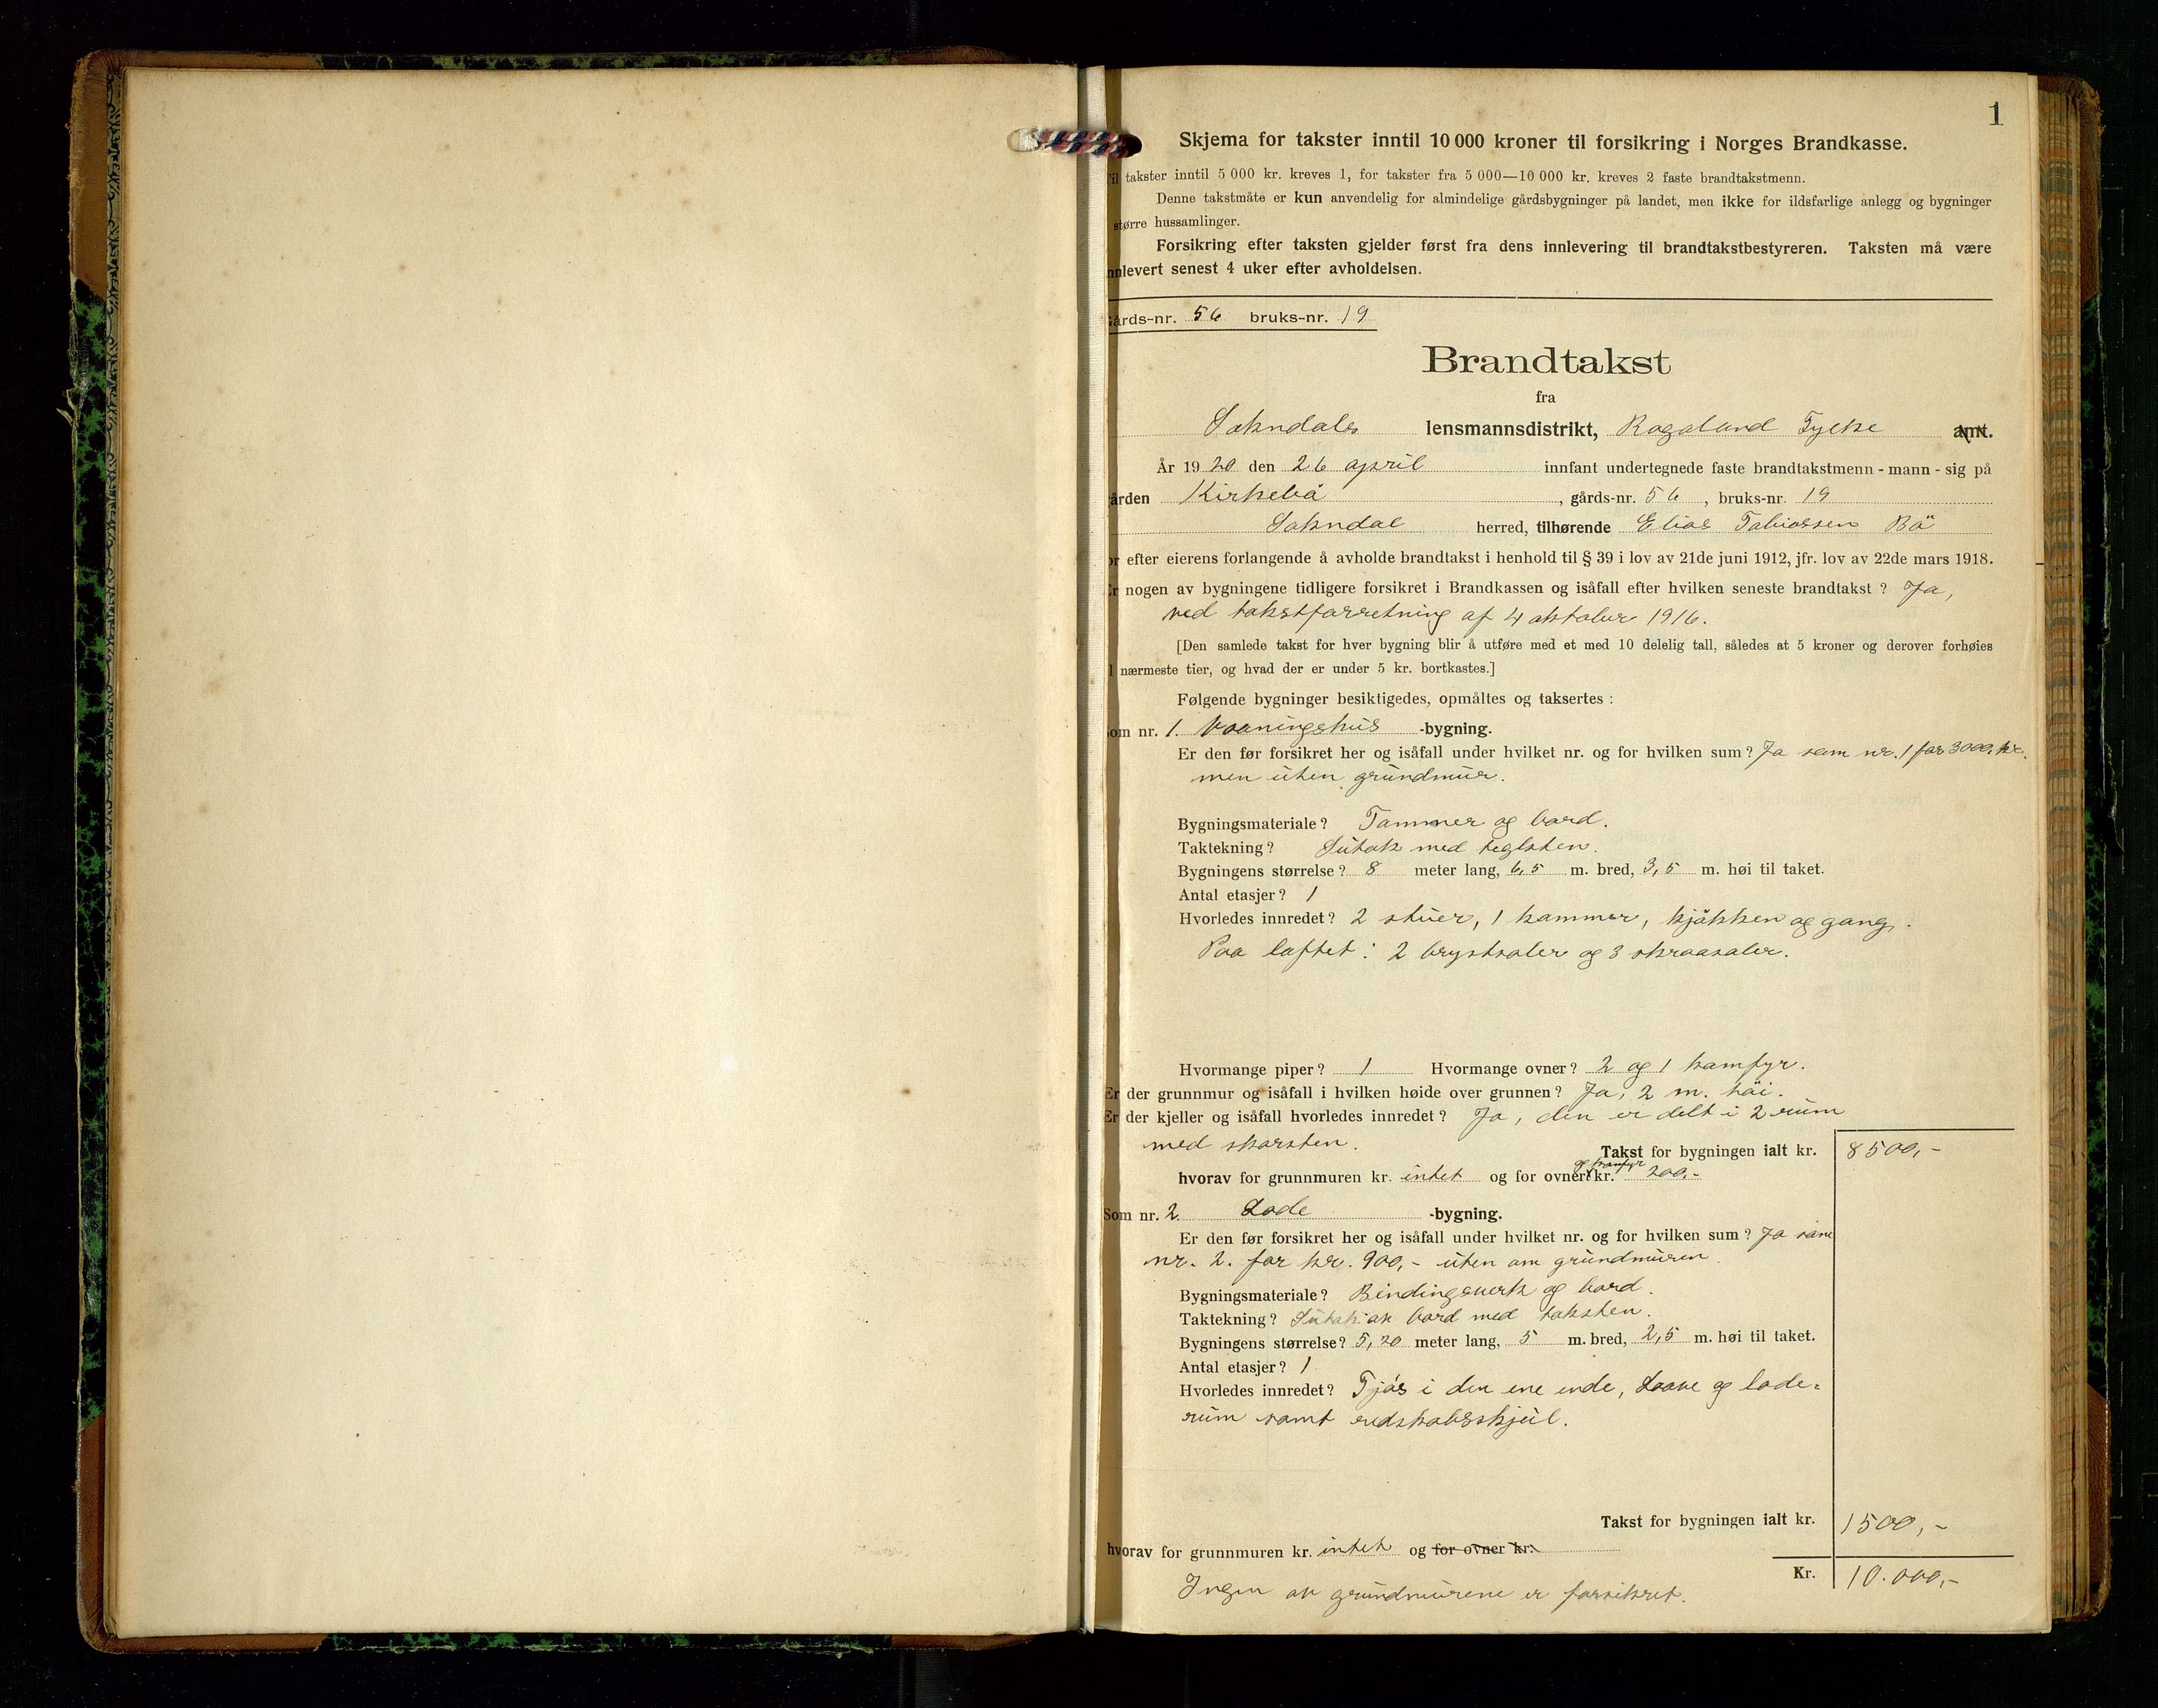 1
Skjema for takster inntil 10 000 kroner til forsikring i Norges Brandkasse.
Til takster inntil 5 000 kr. kreves 1, for takster fra 5 000—10 000 kr. kreves 2 faste brandtakstmenn.
Denne takstmåte er kun anvendelig for almindelige gårdsbygninger på landet, men ikke for ildsfarlige anlegg og bygninger
større hussamlinger.
Forsikring efter taksten gjelder først fra dens innlevering til brandtakstbestyreren. Taksten må være
nnlevert senest 4 uker efter avholdelsen.
Gårds-nr. 56 bruks-nr. 19
Brandtakst
fra
Sokndals lensmannsdistrikt, Rogaland Fylke amt.
År 1920 den 26 april innfant undertegnede faste brandtakstmenn - mann - sig på
gården Kirkebø, gårds-nr. 56, bruks-nr. 19
Sokndal herred, tilhørende Elias Tobiassen Bö
or efter eierens forlangende å avholde brandtakst i henhold til § 39 i lov av 21de juni 1912, jfr. lov av 22de mars 1918.
Er nogen av bygningene tidligere forsikret i Brandkassen og isåfall efter hvilken seneste brandtakst? Ja,
ved takstforretning af 4 oktober 1916.
[Den samlede takst for hver bygning blir å utføre med et med 10 delelig tall, således at 5 kroner og derover forhøies
l nærmeste tier, og hvad der er under 5 kr. bortkastes.]
Følgende bygninger besiktigedes, opmåltes og taksertes :
Som nr. 1. Vaaningshus -bygning.
Er den før forsikret her og isåfall under hvilket nr. og for hvilken sum? Ja som nr. 1 for 3000, kr.
men uten grundmur.
Bygningsmateriale? Tømmer og bord.
Taktekning? Sutak med teglsten.
Bygningens størrelse? 8 meter lang, 6,5 m. bred, 3,5 m. høi til taket.
Antal etasjer? 1
Hvorledes innredet? 2 stuer, 1 kammer, kjøkken og gang.
Paa loftet: 2 brystsaler og 3 skraasaler.
Hvormange piper? 1 Hvormange ovner? 2 og 1 komfyr.
Er der grunnmur og isåfall i hvilken høide over grunnen? Ja, 2 m. höi.
Er der kjeller og isåfall hvorledes innredet? Ja, den er delt i 2 rum
med skorsten.
Takst for bygningen ialt kr. 8500,-
hvorav for grunnmuren kr. intet og for ovner og komfyr kr. 200,-
Som nr. 2. Lode -bygning.
Er den før forsikret her og isåfall under hvilket nr. og for hvilken sum? Ja som
nr. 2. for kr. 900,- uten om grundmuren.
Bygningsmateriale? Bindingsverk og bord.
Taktekning? Sutak av bord med taksten.
Bygningens størrelse? 5,20 meter lang, 5 m. bred, 2,5 m. høi til taket.
Antal etasjer? 1
Hvorledes innredet? Fjös i den ene ende, Laave og lode-
rum samt redskabsskjul.
Takst for bygningen ialt kr. 1500,-
hvorav for grunnmuren kr. intet og for ovner kr.
Kr. 10.000,-
Ingen av grundmurene er forsikret.